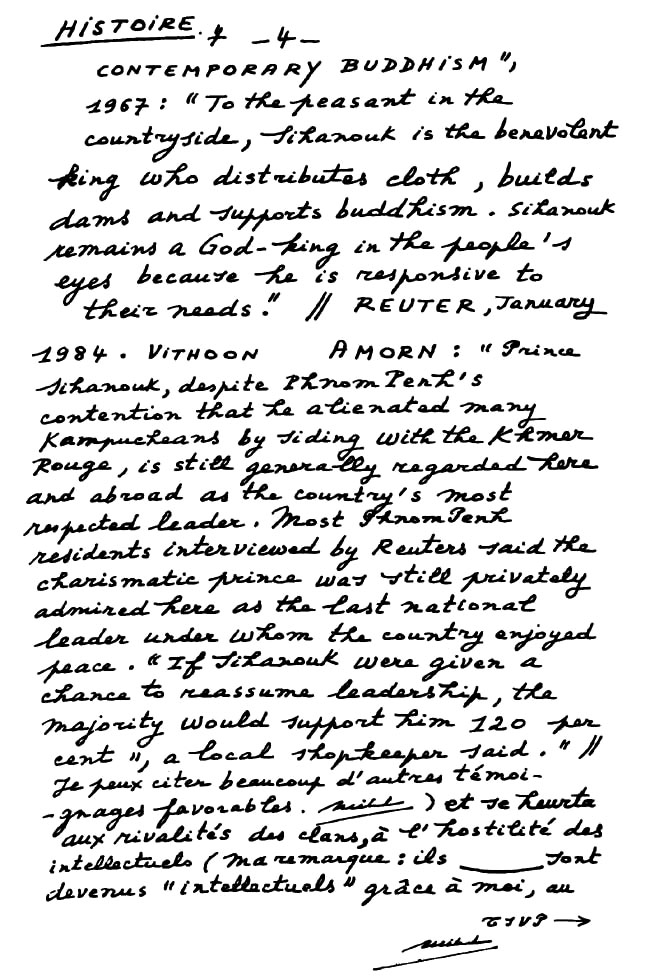 HISTOIRE. 7 -4-
CONTEMPORARY BUDDHISM",
1967 : "To the peasant in the
countryside, Sihanouk is the benevolent
king who distributes cloth, builds
dams and supports buddhism. Sihanouk
remains a God-king in the people's
eyes because he is responsive to
their needs." // REUTER, January
1984. VITHOON AMORN : "Prince
Sihanouk, despite Phnom Penh's
contention that he alienated many
Kampucheans by siding with the Khmer
Rouge, is still generally regarded here
and abroad as the country's most
respected leader. Most Phnom Penh
residents interviewed by Reuters said the
charismatic prince was still privately
admired here as the last national
leader under whom the country enjoyed
peace. "If Sihanouk were given a
chance to reassume leadership, the
majority would support him 120 per
cent", a local shopkeeper said." //
Je peux citer beaucoup d'autres témoi-
-gnages favorables. ) et se heurta
aux rivalités des clans, à l'hostilité des
intellectuels (ma remarque : ils ____ sont
devenus "intellectuels" grâce à moi, au
TSVP →